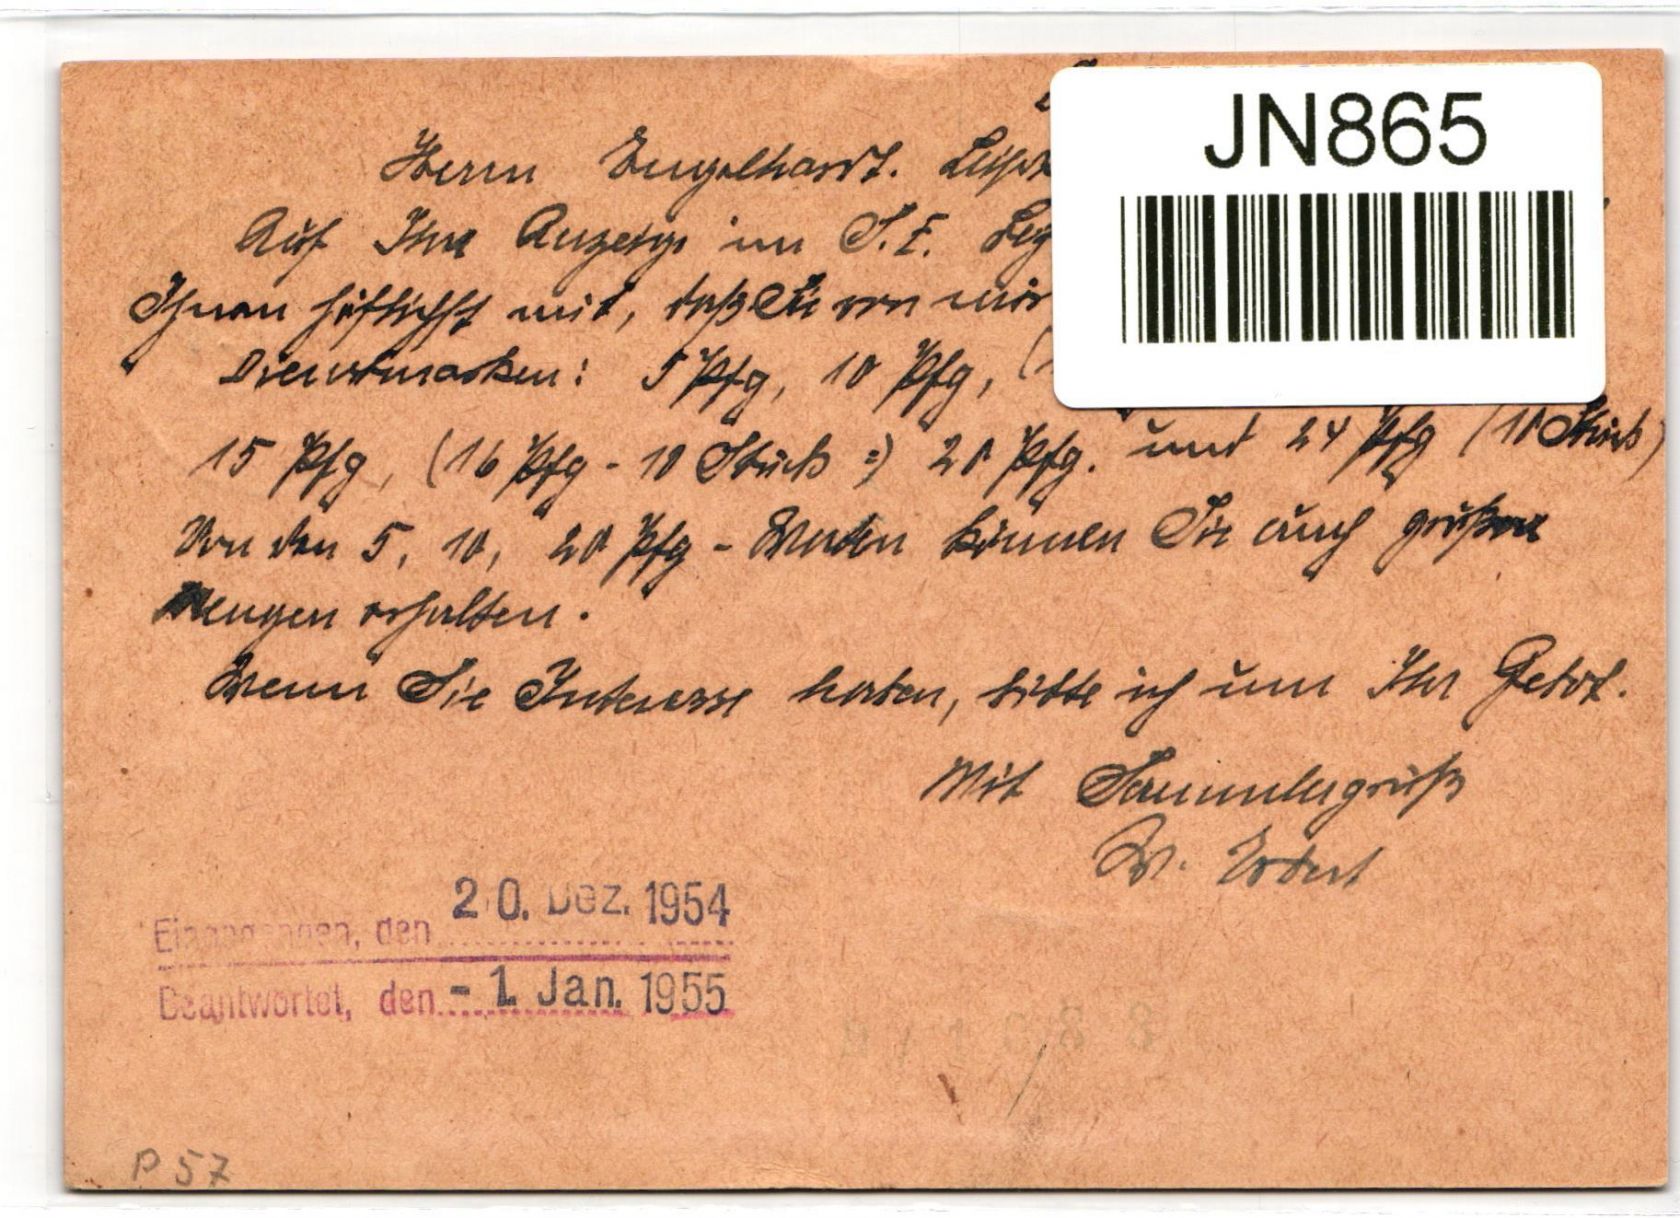 JN865
Herrn Engelhardt. Leipz
Auf Ihre Anzeige im S. E. Leg
Ihnen höflichst mit, daß Sie von mir
Dienstmarken: 5 Pfg, 10 Pfg, (
15 Pfg, (16 Pfg - 10 Stück :) 20 Pfg. und 24 Pfg (10 Stück)
Von den 5, 10, 20 Pfg - Werten können Sie auch größere
Mengen erhalten.
Wenn Sie Interesse haben, bitte ich um Ihr Gebot.
Mit Sammlergruß
W.
Eingegangen, den 20. Dez. 1954
Beantwortet, den - 1. Jan. 1955
P 57